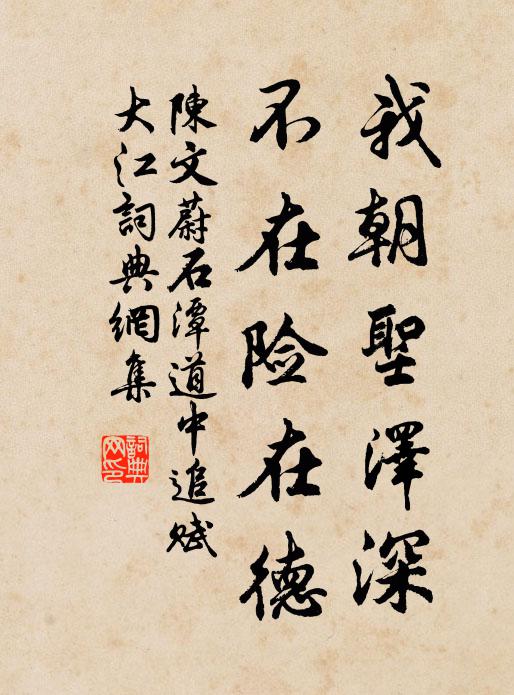 我朝聖澤深
不在险在德
陳文蔚石潭道中追赋
大江詞典網集
詞典网印